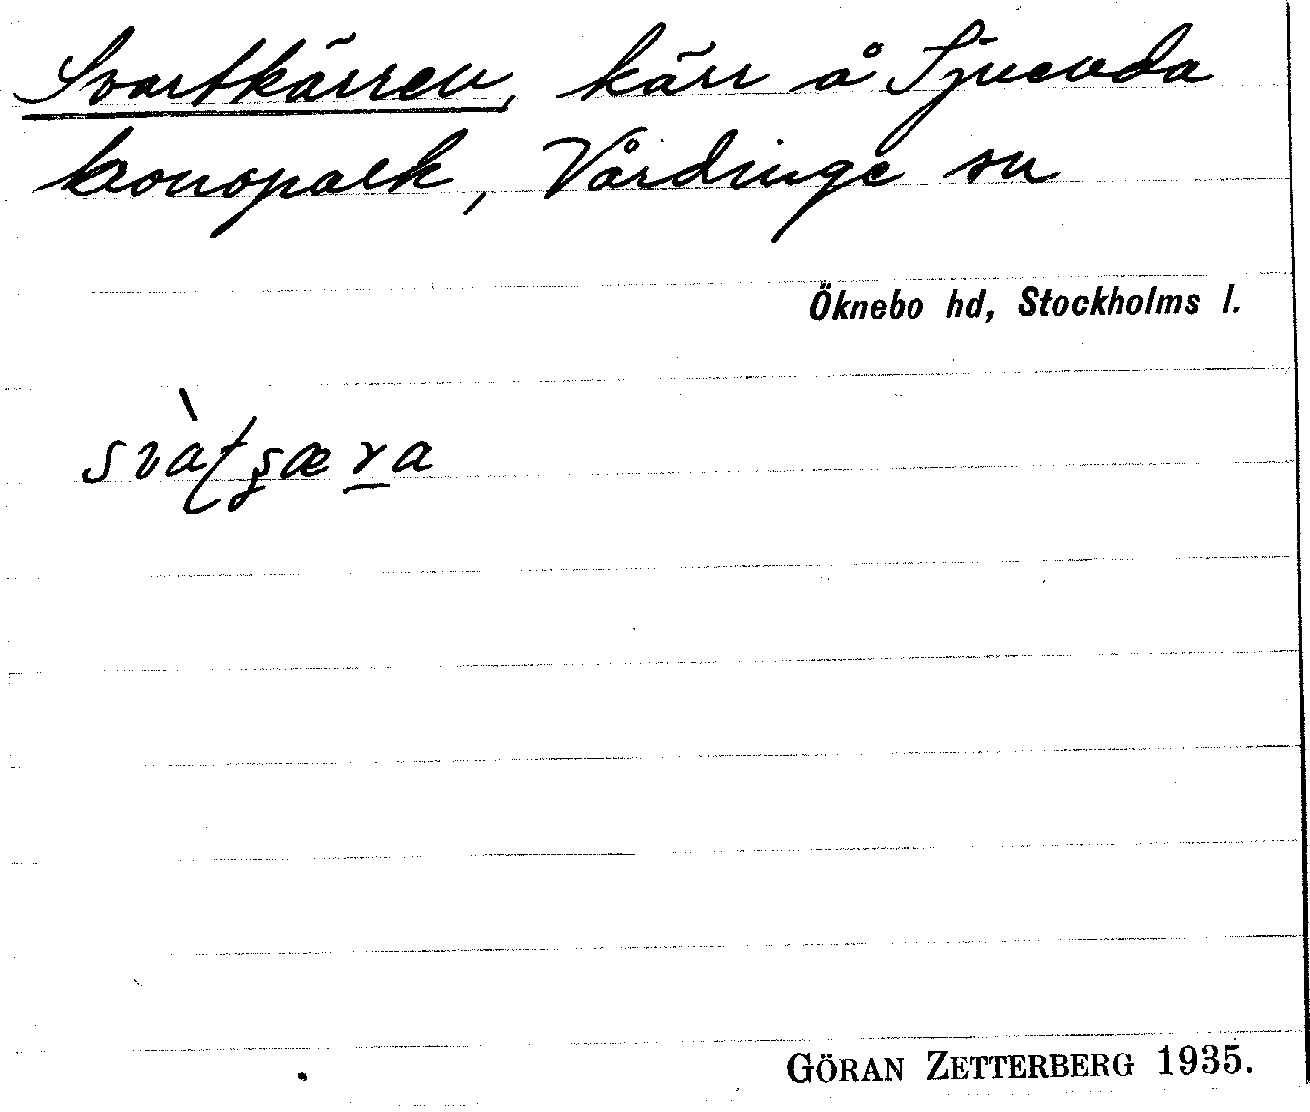 Svartkärren, kärr å Sjuenda
kronopark, Vårdinge sn
Öknebo hd, Stockholms l.
GÖRAN ZETTERBERG 1935.